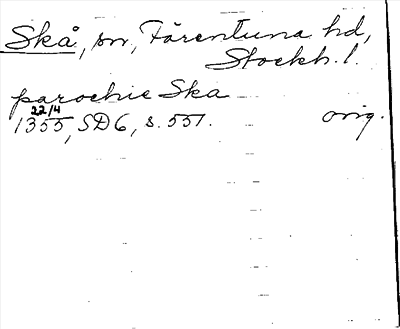 Skå, sn, Färentuna hd,
Stockh. l.
parochie Ska
22/4
1355, SD 6, s. 551. orig.